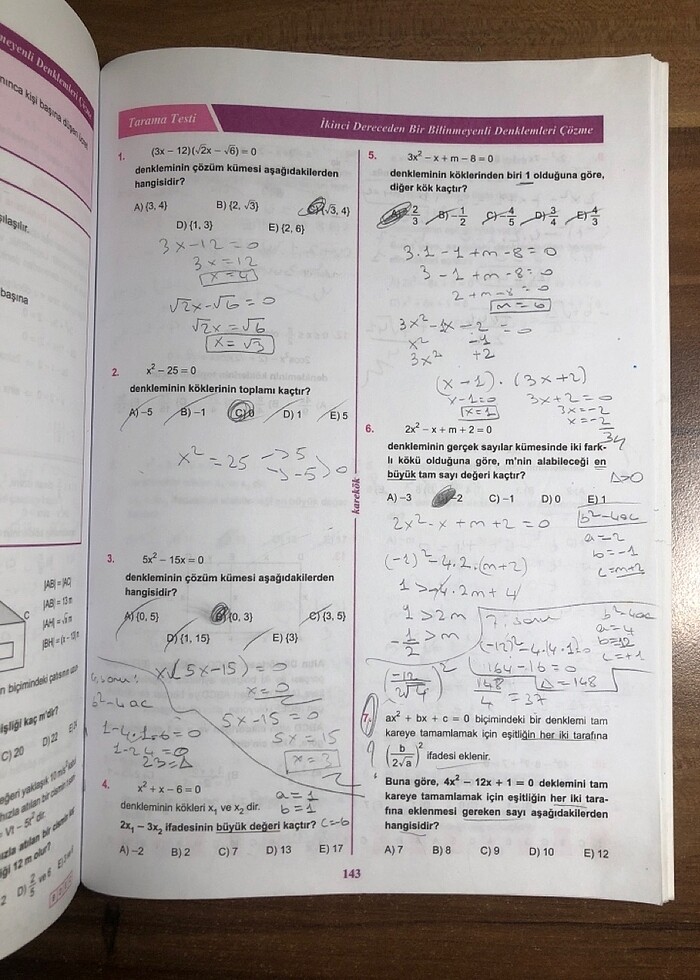 Tarama Testi
İkinci Dereceden Bir Bilinmeyenli Denklemleri Çözme
1. (3x – 12)(√2x – √6) = 0
denkleminin çözüm kümesi aşağıdakilerden
hangisidir?
A) {3, 4} B) {2, √3} C) {√3, 4}
D) {1, 3} E) {2, 6}
3x-12=0
3x=12
x=4
√2x-√6=0
√2x=√6
x=√3
2. x² – 25 = 0
denkleminin köklerinin toplamı kaçtır?
A) –5 B) –1 C) 0 D) 1 E) 5
x²=25 →5
→-5 >0
3. 5x² – 15x = 0
denkleminin çözüm kümesi aşağıdakilerden
hangisidir?
A) {0, 5} B) {0, 3} C) {3, 5}
D) {1, 15} E) {3}
x(5x-15)=0
x=0
5x-15=0
5x=15
x=3
b²-4ac
1-4.1.6=0
1-24=0
23=Δ
4. x² + x – 6 = 0
a=1
b=1
c=-6
denkleminin kökleri x₁ ve x₂ dir.
2x₁ – 3x₂ ifadesinin büyük değeri kaçtır?
A) –2 B) 2 C) 7 D) 13 E) 17
karekök
5. 3x² – x + m – 8 = 0
denkleminin köklerinden biri 1 olduğuna göre,
diğer kök kaçtır?
A) –2/3 B) –1/2 C) –4/5 D) 3/4 E) 4/3
3.1-1+m-8=0
3-1+m-8=0
2+m-8=0
m=6
3x²-1x-2=0
x² -1
3x² +2
(x-1).(3x+2)
x-1=0 3x+2=0
x=1 3x=-2
x=-2/3
6. 2x² – x + m + 2 = 0
denkleminin gerçek sayılar kümesinde iki fark-
lı kökü olduğuna göre, m'nin alabileceği en
büyük tam sayı değeri kaçtır?
Δ>0
A) –3 B) –2 C) –1 D) 0 E) 1
2x²-x+m+2=0
b²-4ac
a=2
b=-1
c=m+2
(-1)²-4.2.(m+2)
1>2m
-1/2>m
7. soru
b²-4ac
a=4
b=12
c=+1
(-12)²-4.4.1=0
164-16=0
Δ=148
148/4=37
(-12/2√4)²
7. ax² + bx + c = 0 biçimindeki bir denklemi tam
kareye tamamlamak için eşitliğin her iki tarafına
(b/2√a)² ifadesi eklenir.
Buna göre, 4x² – 12x + 1 = 0 deklemini tam
kareye tamamlamak için eşitliğin her iki tara-
fına eklenmesi gereken sayı aşağıdakilerden
hangisidir?
A) 7 B) 8 C) 9 D) 10 E) 12
143
nınca kişi başına düşen ücret
başına
|AB| = |AC|
|AB| = 13 m
C
n biçimindeki çatının uzun
işliği kaç m'dir?
C) 20 D) 22